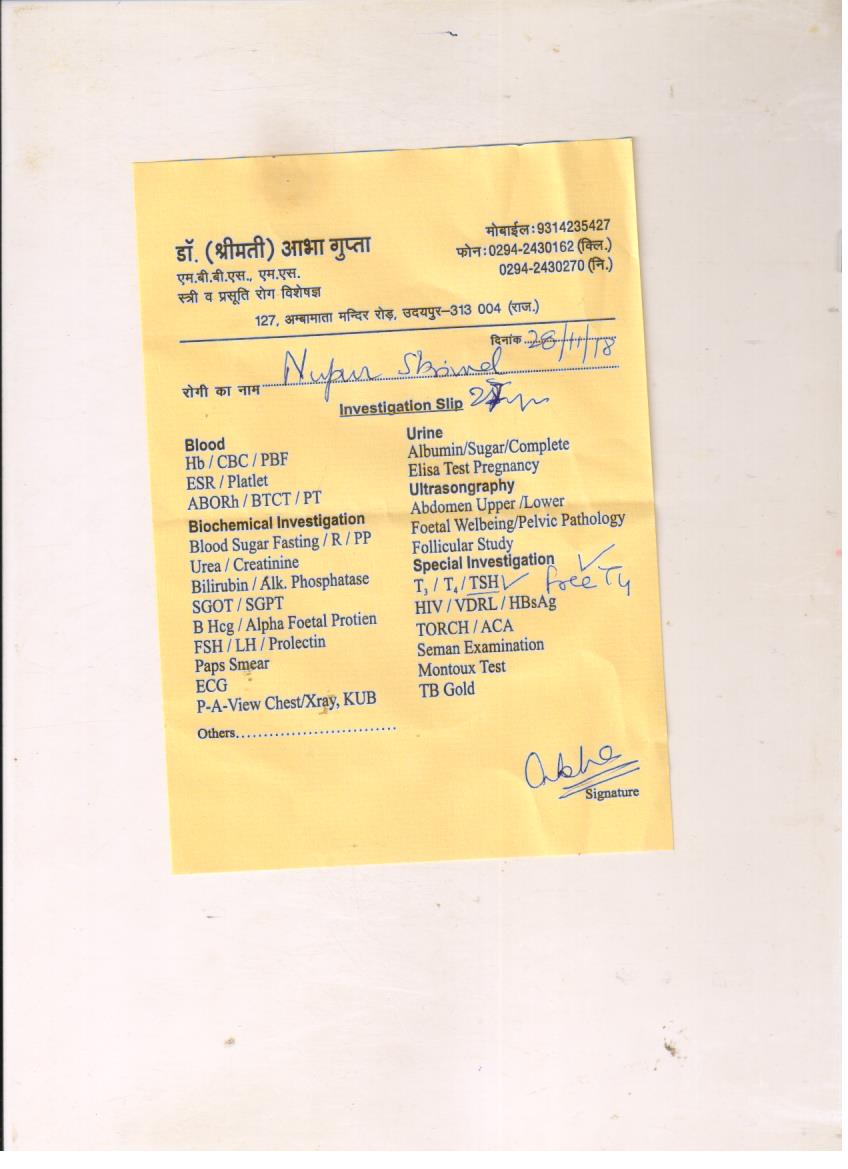 डॉ. (श्रीमती) आभा गुप्ता
एम.बी.बी.एस., एम.एस.
स्त्री व प्रसूति रोग विशेषज्ञ
मोबाईल:9314235427
फोन:0294-2430162 (क्लि.)
0294-2430270 (नि.)
127, अम्बामाता मन्दिर रोड़, उदयपुर-313 004 (राज.)
दिनांक 28/11/18
रोगी का नाम Nupur
Investigation Slip
Blood
Hb / CBC / PBF
ESR / Platlet
ABORh / BTCT / PT
Biochemical Investigation
Blood Sugar Fasting / R / PP
Urea / Creatinine
Bilirubin / Alk. Phosphatase
SGOT / SGPT
B Hcg / Alpha Foetal Protien
FSH / LH / Prolectin
Paps Smear
ECG
P-A-View Chest/Xray, KUB
Others............................
Urine
Albumin/Sugar/Complete
Elisa Test Pregnancy
Ultrasongraphy
Abdomen Upper /Lower
Foetal Welbeing/Pelvic Pathology
Follicular Study
Special Investigation
T₃ / T₄ / TSH ✓ free T4 ✓
HIV / VDRL / HBsAg
TORCH / ACA
Seman Examination
Montoux Test
TB Gold
Abha
Signature